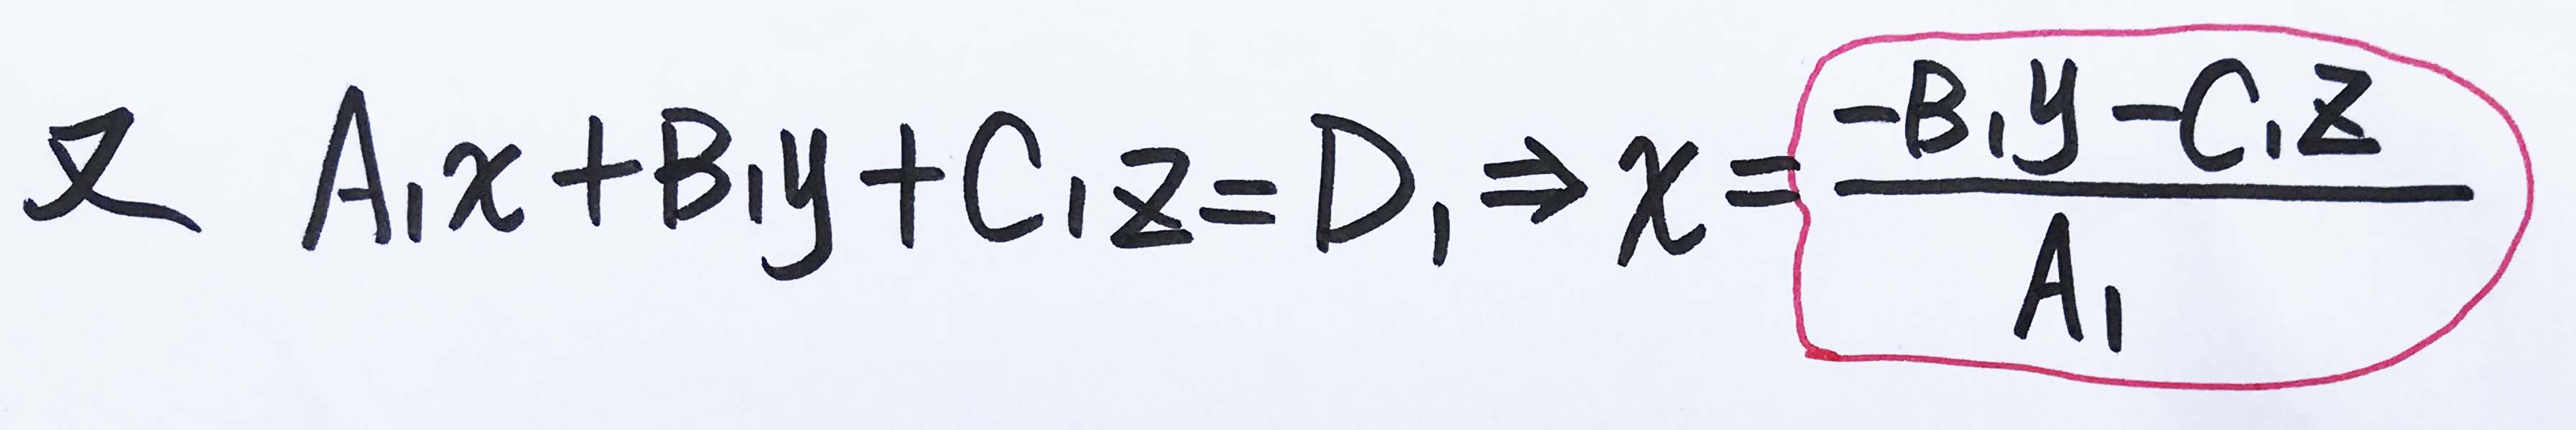 又 A₁x+B₁y+C₁z=D₁⇒x=(-B₁y-C₁z)/A₁